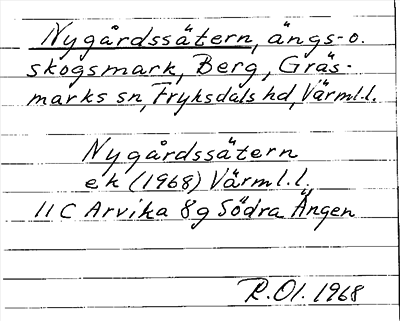 Nygårdssätern, ängs- o.
skogsmark, Berg, Gräs-
marks sn, Fryksdals hd, Värml.l.
Nygårdssätern
ek (1968) Värml.l.
11 C Arvika 8g Södra Ängen
R.Ol. 1968